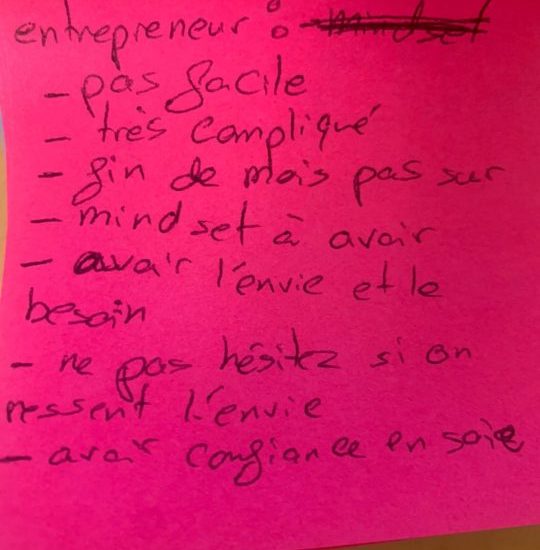 entrepreneur : mindset
- pas facile
- très compliqué
- fin de mois pas sur
- mind set à avoir
- avoir l'envie et le
besoin
- ne pas hésitez si on
ressent l'envie
- avoir confiance en soie